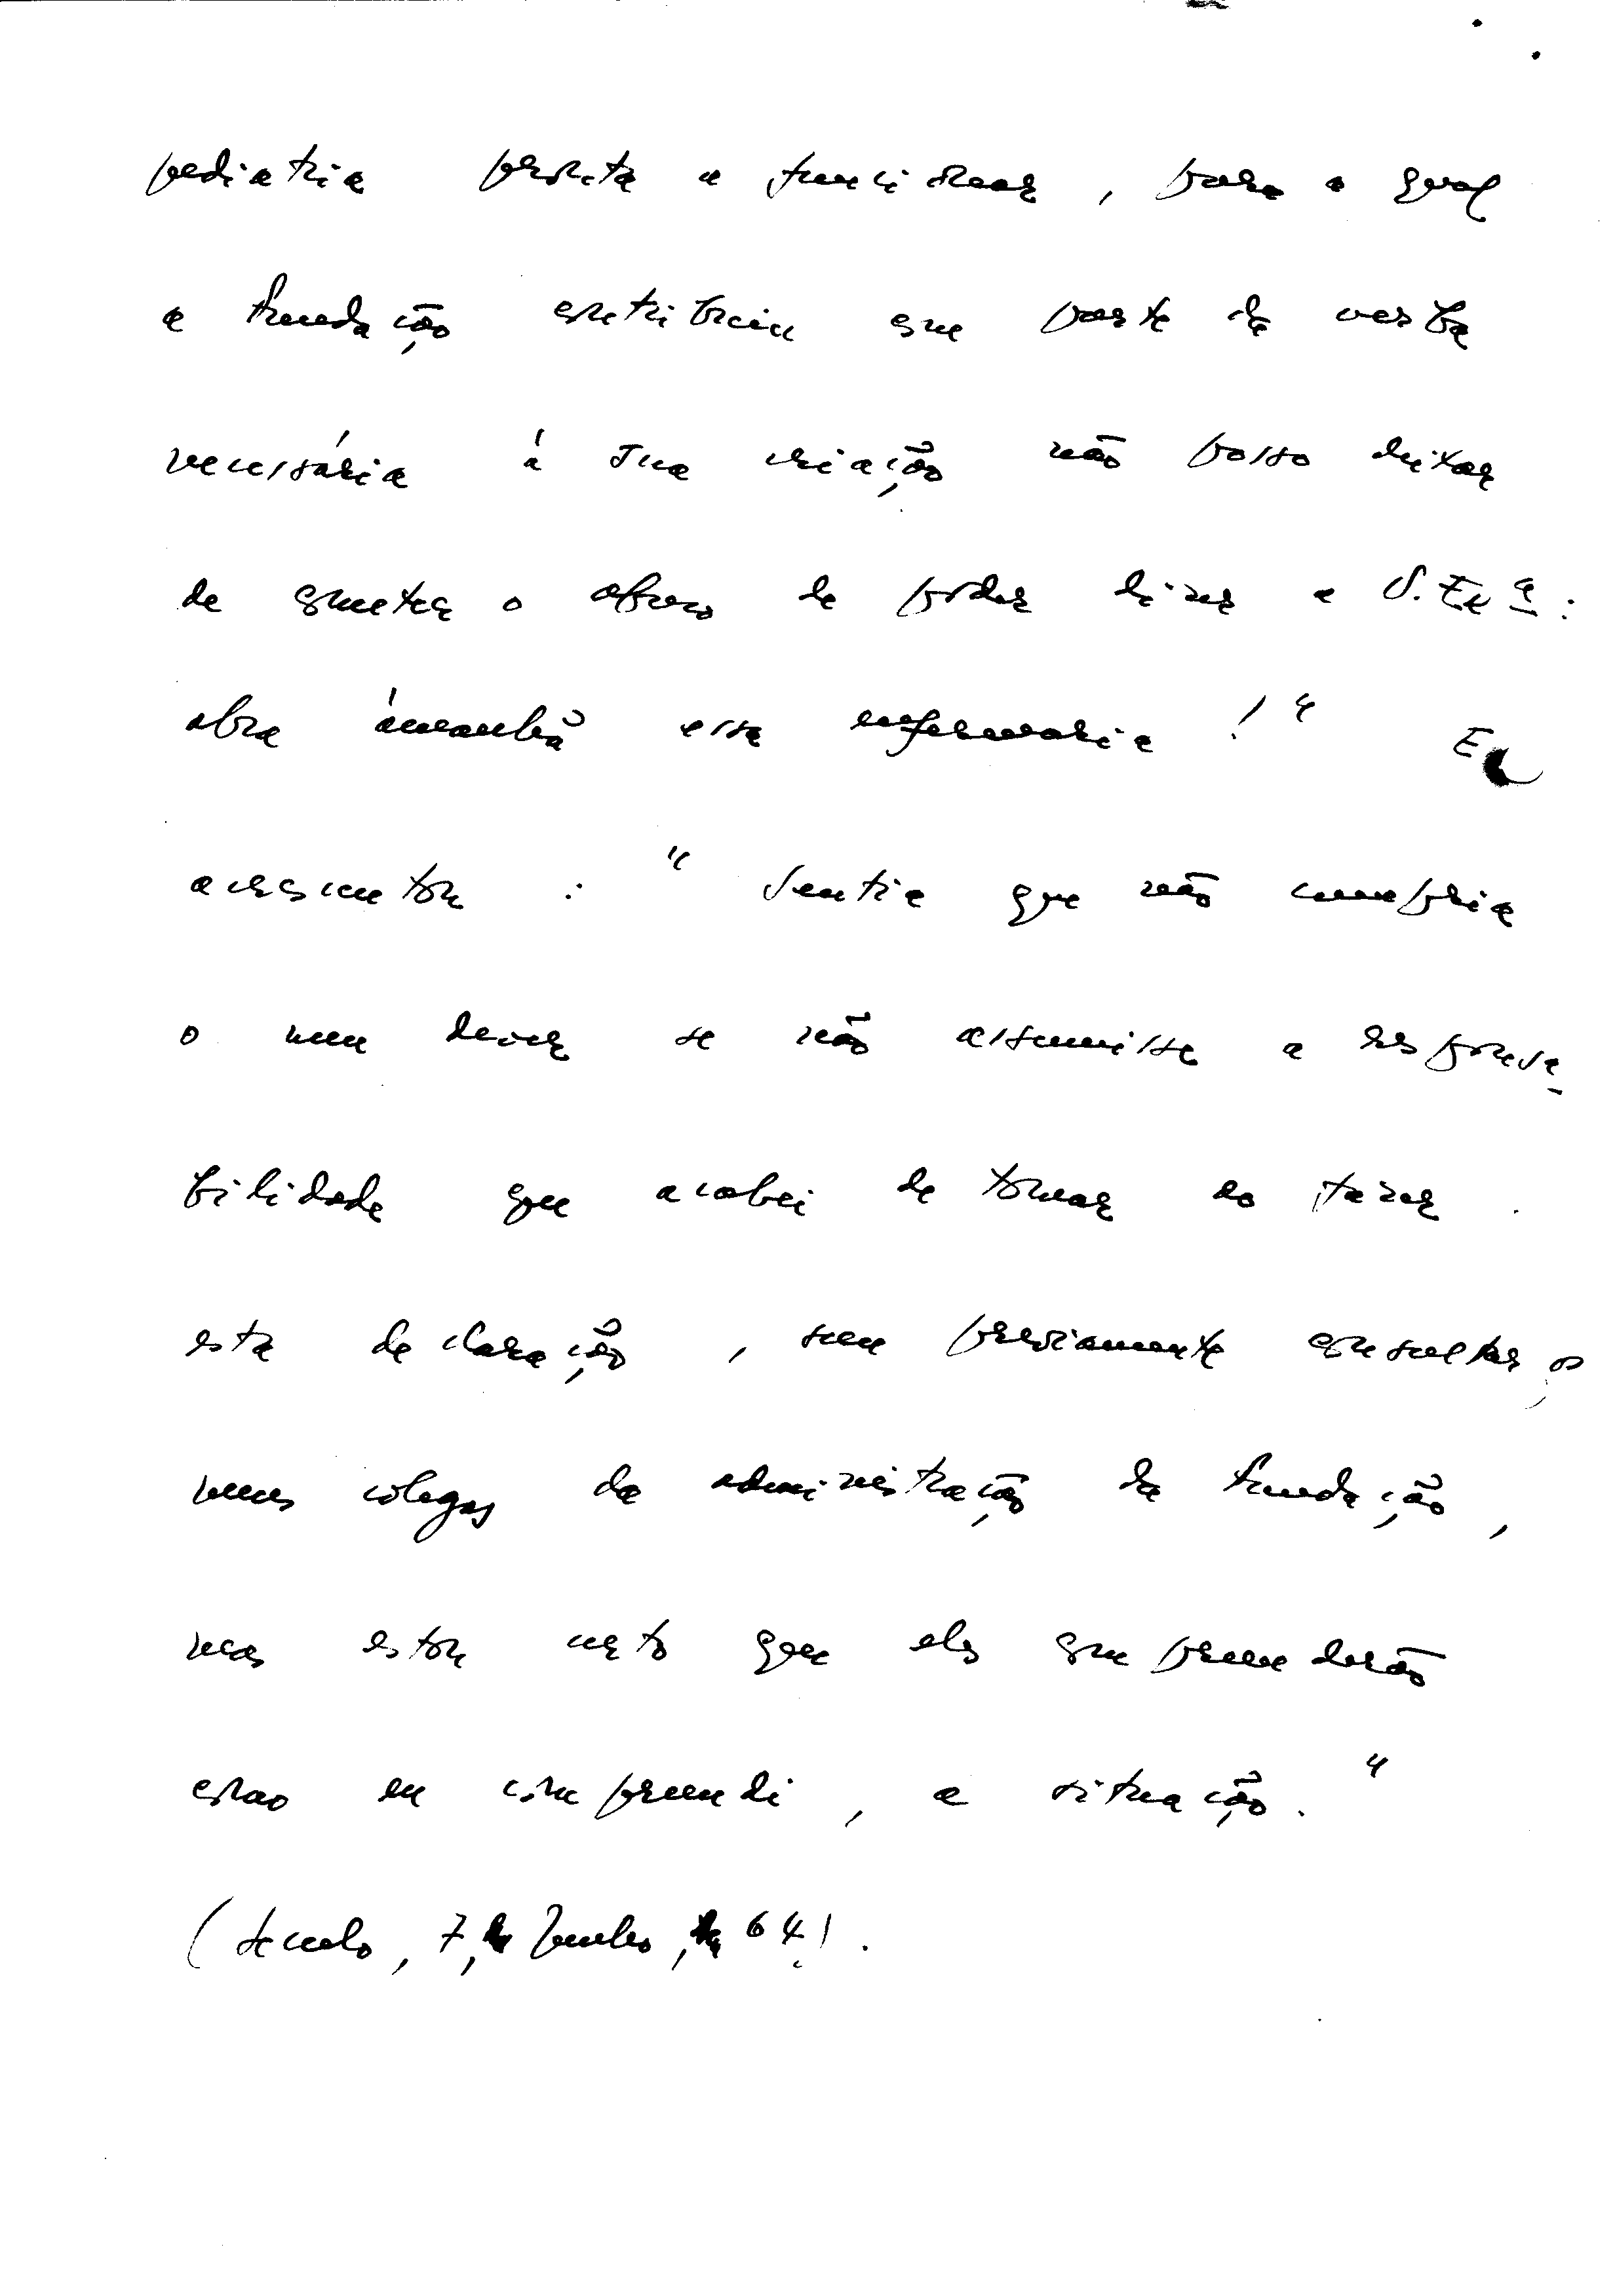 pediatria pronta a funcionar, para a qual
a Fundação contribuiu com parte da verba
necessária á sua criação não posso deixar
de cometer o abuso de poder dizer a V. Exª:
abra ámanhã essa enfermaria!" E
acrescentou: "Sentia que não cumpria
o meu dever se não assumisse a responsa-
bilidade que acabei de tomar ao fazer
esta declaração, sem previamente consultar os
meus colegas da administração da Fundação,
mas estou certo que eles compreenderão
como eu compreendi, a situação."
(Seculo, 7, de Junho, de 64).